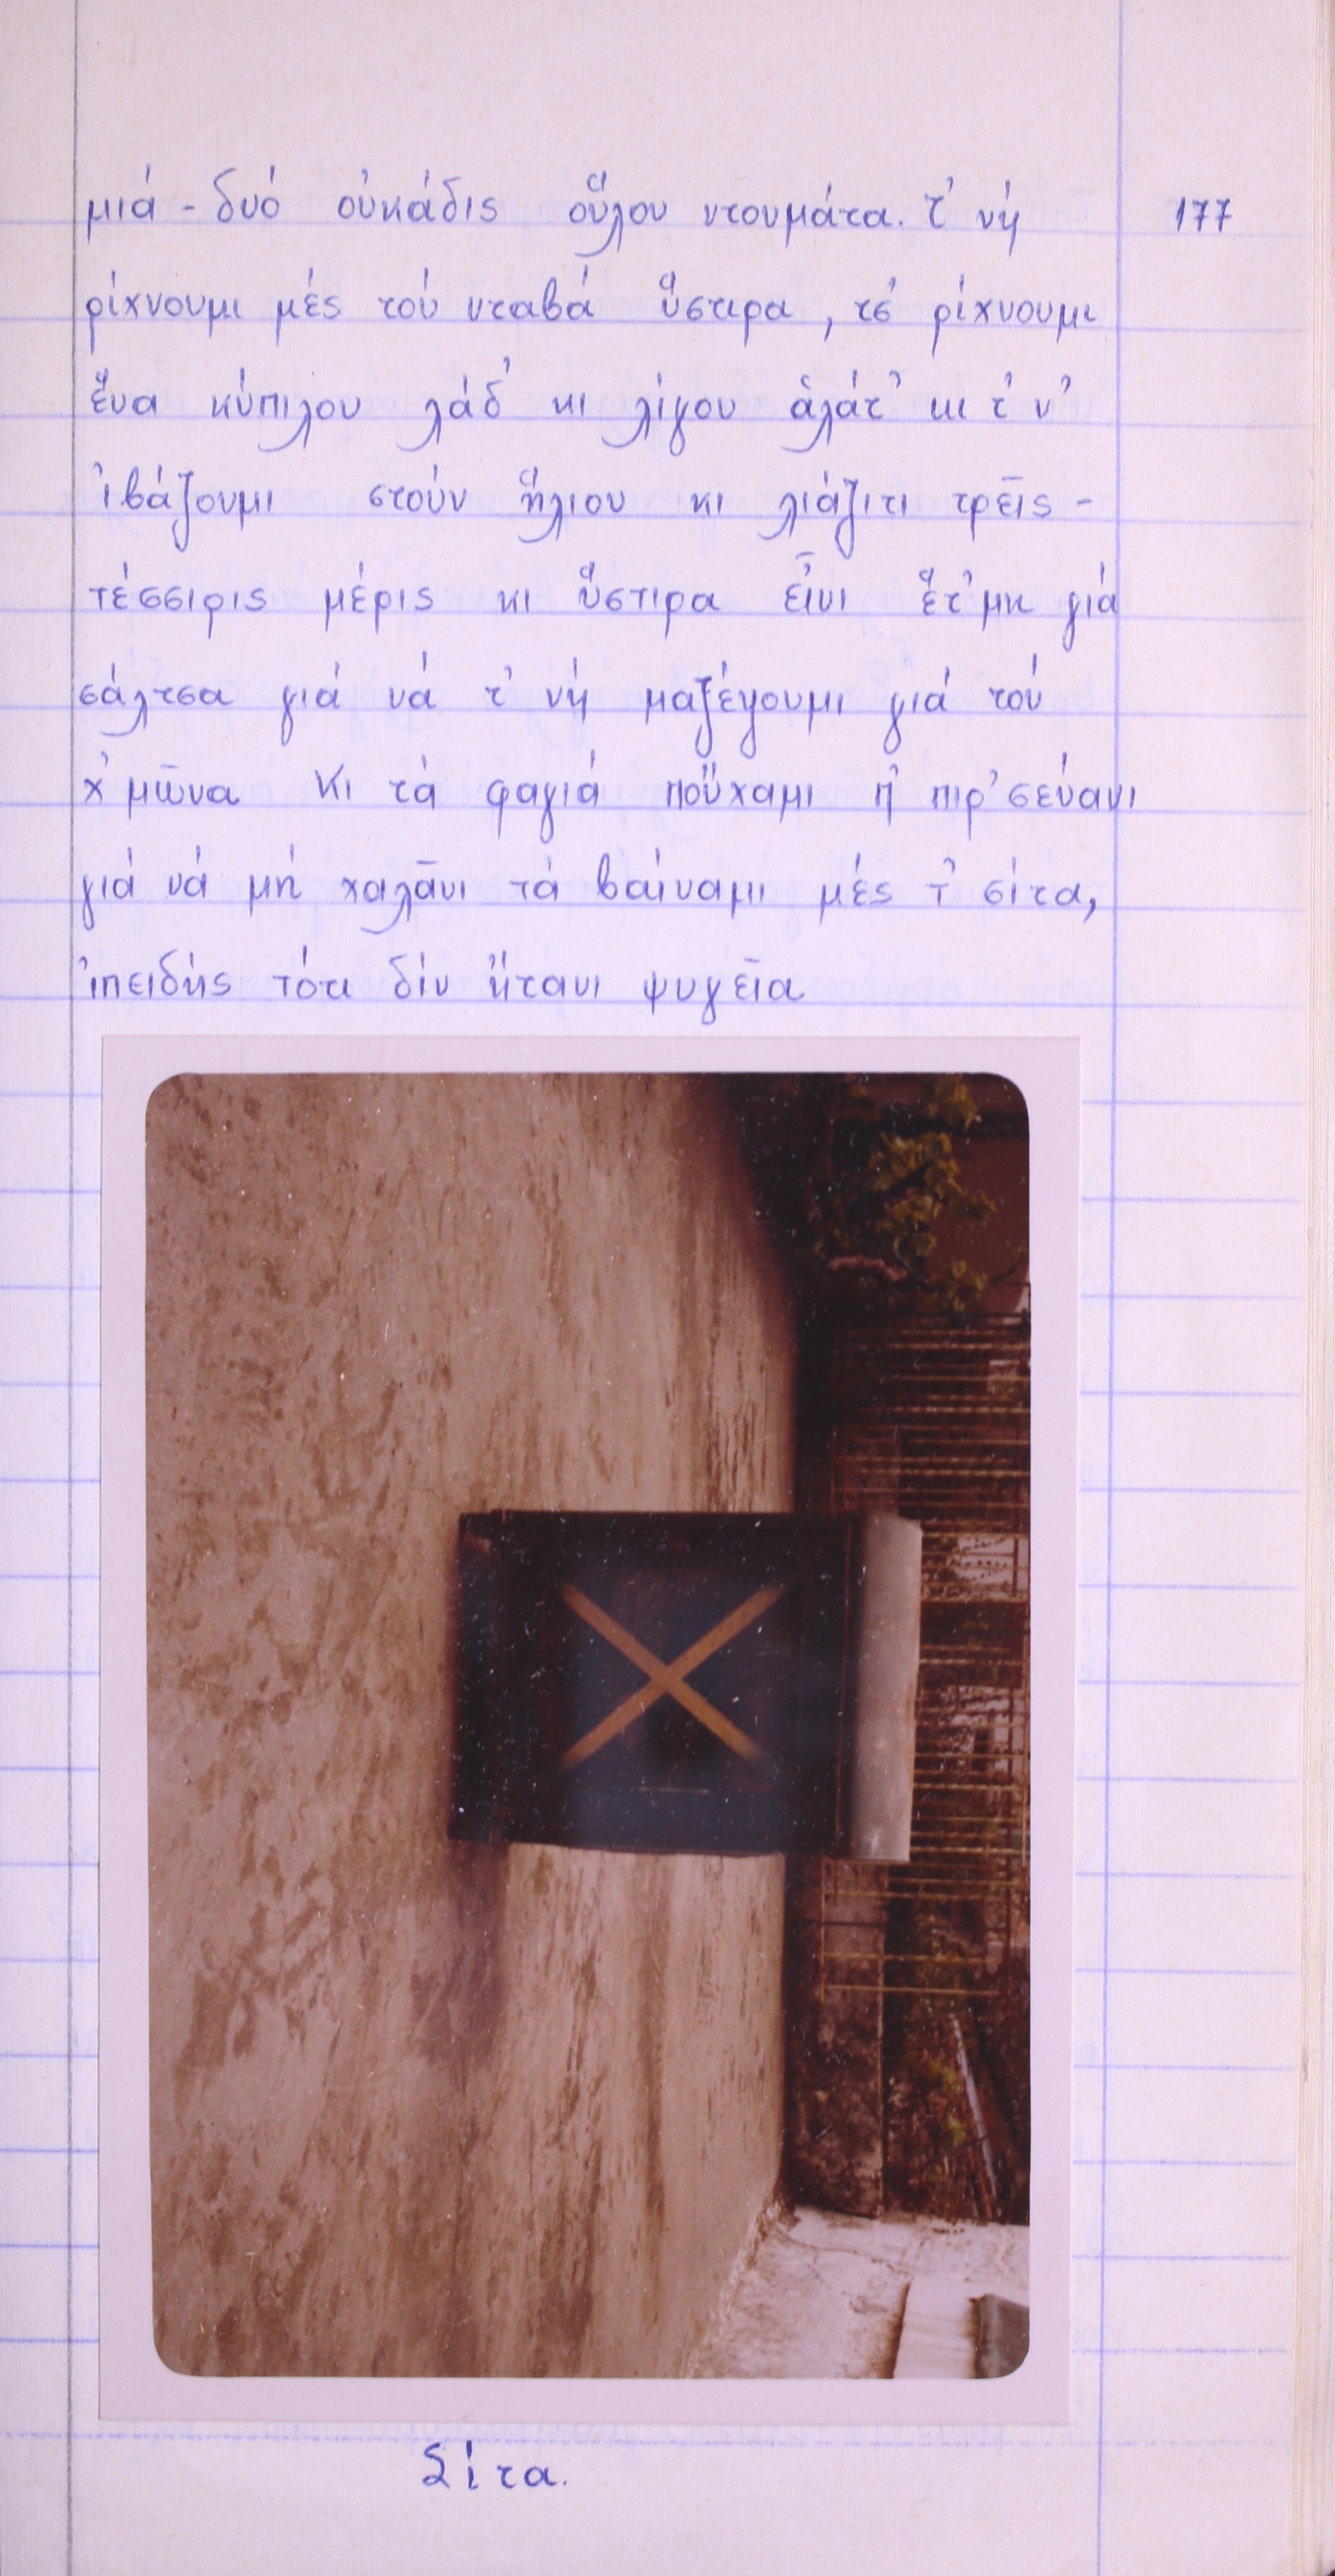 μιά - δυό οὐκάδις οὕλου ντουμάτα. τ' νή
177
ρίχνουμι μές τού νταβά ὕστιρα, τσ' ρίχνουμι
ἕνα κύπιλου λάδ' κι λίγου ἁλάτ' κι τ' ν'
'ιβάζουμι στούν ἥλιου κι λιάζιτι τρεῖς -
τέσσιρις μέρις κι ὕστιρα εἶνι ἕτ'μη γιά
σάλτσα γιά νά τ' νή μαζέψουμι γιά τού
χ'μῶνα Κι τά φαγιά ποὔχαμι π' πιρ'σεύανι
γιά νά μή χαλᾶνι τά βαίναμι μές τ' σίτα,
'ιπειδής τότι δίν ἤτανι ψυγεῖα
Σίτα.